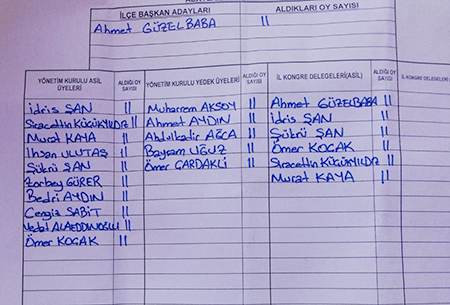 İLÇE BAŞKAN ADAYLARI ALDIKLARI OY SAYISI
Ahmet GÜZELBABA 11
YÖNETİM KURULU ASİL ÜYELERİ ALDIĞI OY SAYISI YÖNETİM KURULU YEDEK ÜYELERİ ALDIĞI OY SAYISI İL KONGRE DELEGELERİ(ASİL) ALDIĞI OY SAYISI İL KONGRE DELEGELERİ
İdris ŞAN 11 Muharrem AKSOY 11 Ahmet GÜZELBABA 11
Siracettin KÜÇÜKYILDIZ 11 Ahmet AYDIN 11 İdris ŞAN 11
Murat KAYA 11 Abdulkadir AĞCA 11 Şükrü ŞAN 11
İhsan ULUTAŞ 11 Bayram UĞUZ 11 Ömer KOÇAK 11
Şükrü ŞAN 11 Ömer ÇARDAKLI 11 Siracettin KÜÇÜKYILDIZ 11
Zorbey GÜRER 11 Murat KAYA 11
Bedri AYDIN 11
Cengiz SABİT 11
Vedat ALAEDDİNOĞLU 11
Ömer KOÇAK 11